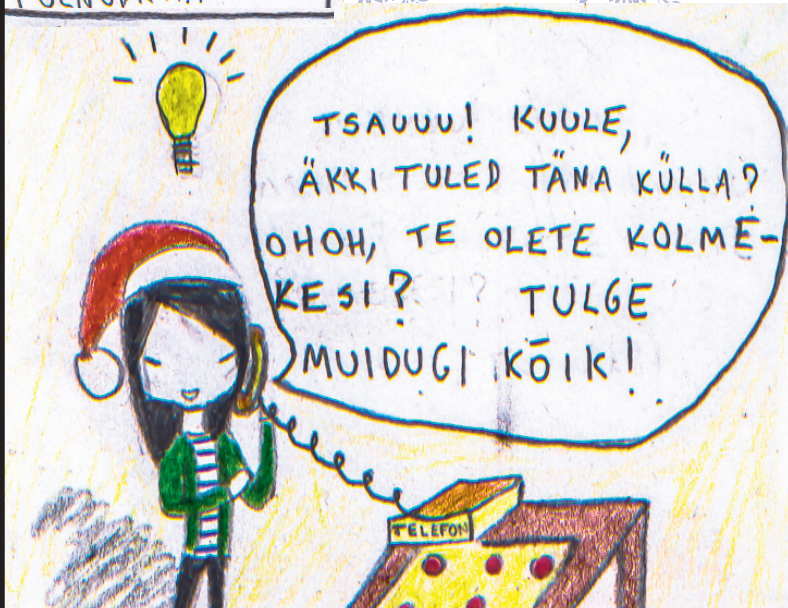 TSAUUU! KUULE,
ÄKKI TULED TÄNA KÜLLA?
OHOH, TE OLETE KOLME-
KESI? TULGE
MUIDUGI KÕIK!
TELEFON